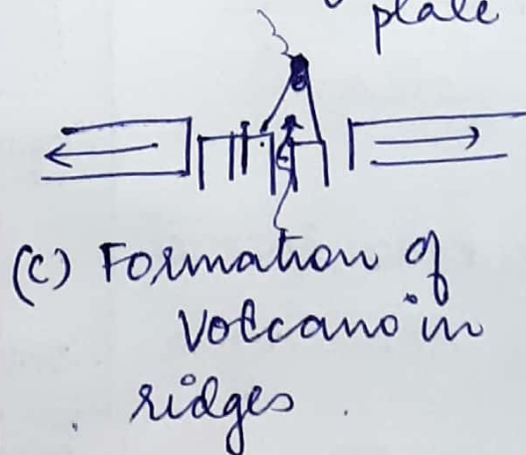 plate
(c) Formation of
Volcano in
ridges.